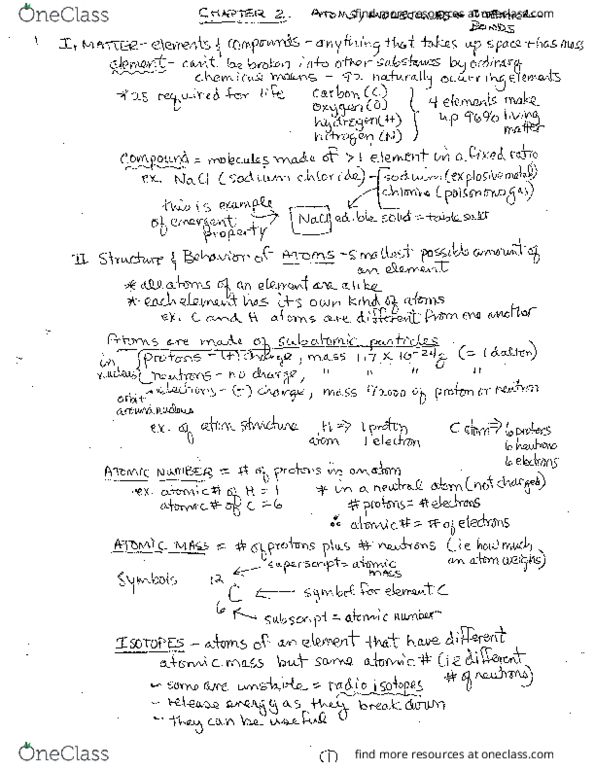 OneClass
find more resources at oneclass.com
CHAPTER 2. ATOMS
BONDS
I. MATTER - elements & compounds - anything that takes up space & has mass
element - can't be broken into other substances by ordinary
chemical means - 92 naturally ocurring elements
* 25 required for life
carbon (C)
oxygen (O)
hydrogen (H)
nitrogen (N)
4 elements make
up 96% living
matter
compound = molecules made of >1 element in a fixed ratio
ex. NaCl (sodium chloride) - sodium (explosive metal)
chlorine (poisonous gas)
this is example
of emergent
property
NaCl edible solid = table salt
II Structure & Behavior of ATOMS - smallest possible amount of
an element
* all atoms of an element are alike
* each element has its own kind of atoms
ex. C and H atoms are different from one another
Atoms are made of subatomic particles
in
nucleus
protons - (+) charge, mass 1.7 x 10-24g (= 1 dalton)
neutrons - no charge, " " "
electrons - (-) charge, mass 1/2000 of proton or neutron
orbit
around nucleus
ex. of atom structure
H => 1 proton
atom 1 electron
C atom => 6 protons
6 neutrons
6 electrons
ATOMIC NUMBER = # of protons in an atom
ex. atomic # of H = 1
atomic # of C = 6
* in a neutral atom (not charged)
# protons = # electrons
∴ atomic # = # of electrons
ATOMIC MASS = # of protons plus # neutrons (ie how much
an atom weighs)
superscript = atomic
mass
Symbols 12
C symbol for element C
6
subscript = atomic number
ISOTOPES - atoms of an element that have different
atomic mass but same atomic # (ie different
# of neutrons)
- some are unstable = radio isotopes
- release energy as they break down
- they can be useful
(1)
OneClass
find more resources at oneclass.com